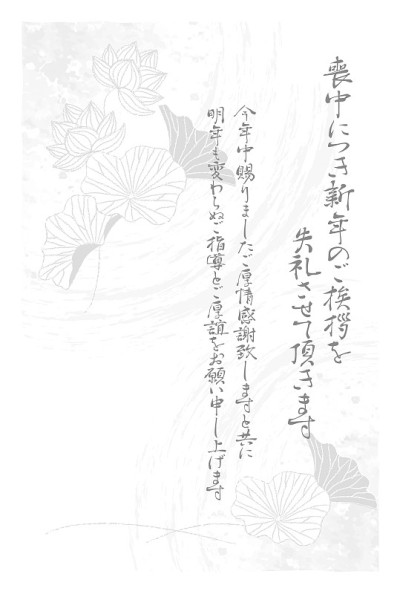 喪中につき新年のご挨拶を
失礼させて頂きます
今年中賜りましたご厚情感謝致しますと共に
明年も変わらぬご指導とご厚誼をお願い申し上げます